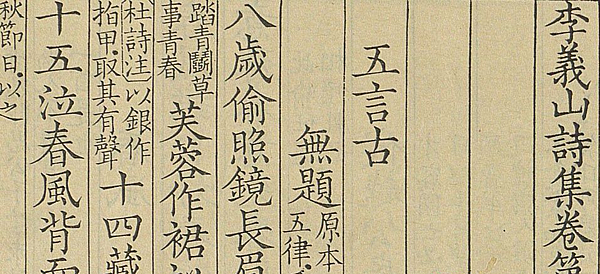 李義山詩集卷第
五言古
無題 原本
五律
八歲偷照鏡長眉
踏青鬭草
事青春
芙蓉作裙
杜詩注以銀作
指甲取其有聲
十四藏
十五泣春風背面
秋節日以之